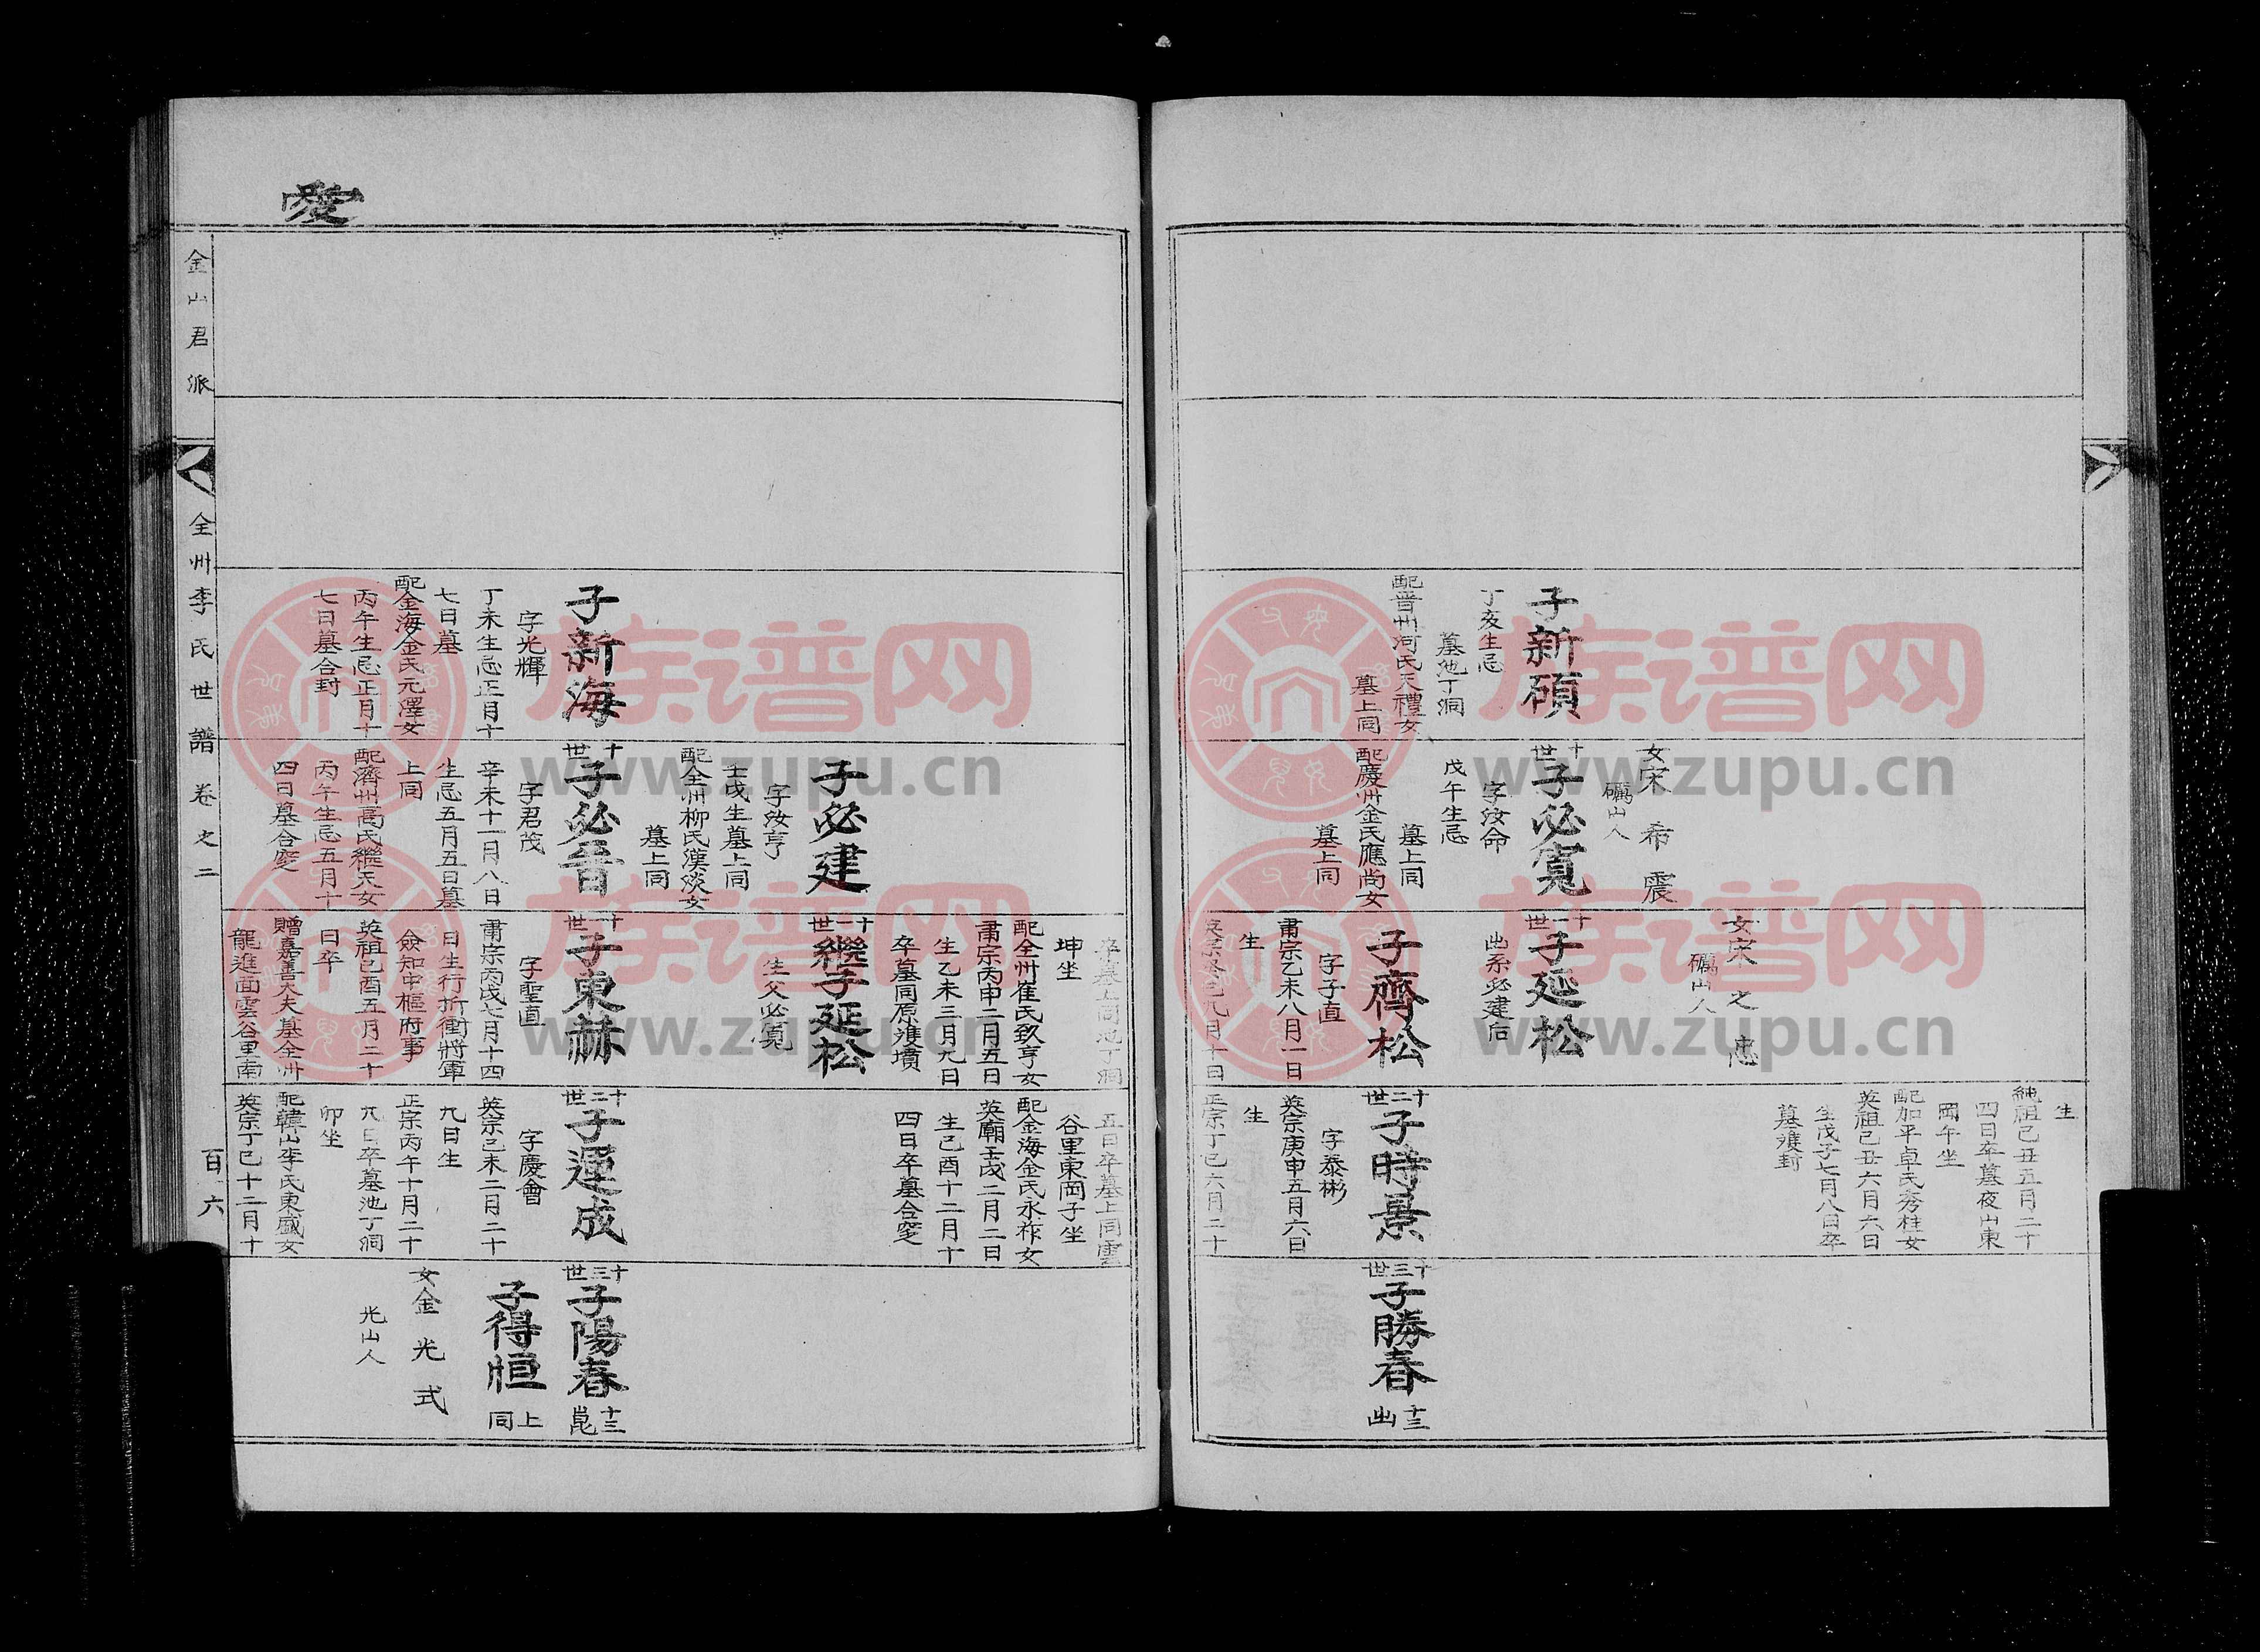 女宋希震
礪山人
女宋之忠
礪山人
生
純祖己丑五月二十
四日卒墓夜山東
岡午坐
配加平卓氏秀柱女
英祖己丑六月六日
生戊子七月八日卒
墓雙封
子新碩
丁亥生忌
墓池丁洞
配晋州河氏天禮女
墓上同
十世
子必寬
字汝命
戊午生忌
墓上同
配慶州金氏應尚女
墓上同
十一世
子延松
出系必建后
子齊松
字子直
肅宗乙未八月一日
生
十二世
子時景
字泰彬
英宗庚申五月六日
生
正宗丁巳六月二十
十三世
子勝春
十三
出
卒墓上同池丁洞
坤坐
配全州崔氏致亨女
肅宗丙申二月五日
生乙未三月九日
卒墓同原雙墳
五日卒墓上同雲
谷里東岡子坐
配金海金氏永祚女
英廟壬戌二月二日
生己酉十二月十
四日卒墓合窆
子必建
字汝亨
壬戌生墓上同
配全州柳氏漢淡女
墓上同
十一世
繼子延松
生父必寬
子新海
字光輝
丁未生忌正月十
七日墓
配金海金氏元澤女
丙午生忌正月十
七日墓合封
十世
子必晋
字君茂
辛未十一月八日
生忌五月五日墓
上同
配濟州高氏繼天女
丙午生忌五月十
四日墓合窆
十一世
子東赫
字聖直
肅宗丙戌七月十四
日生行折衝將軍
僉知中樞府事
英祖己酉五月二十
日卒
贈嘉善大夫墓全州
龍進面雲谷里南
十二世
子運成
字慶會
英宗己未二月二十
九日生
正宗丙午十月二十
九日卒墓池丁洞
卯坐
配韓山李氏東盛女
英宗丁巳十二月十
十三世
子陽春
十三
崑
子得恒
上同
女金光式
光山人
愛
金山君派
全州李氏世譜 卷之二
百六
族谱网
www.zupu.cn
族谱网
www.zupu.cn
族谱网
www.zupu.cn
族谱网
www.zupu.cn